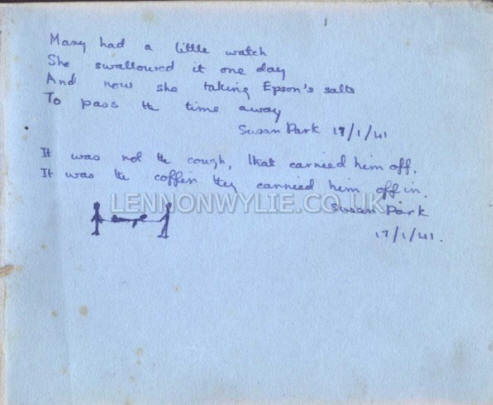 Mary had a little watch
She swallowed it one day
And now she taking Epson's salts
To pass the time away
Susan Park 17/1/41
It was not the cough, that carried him off.
It was the coffin they carried him off in.
LENNONWYLIE.CO.UK
Susan Park
17/1/41.